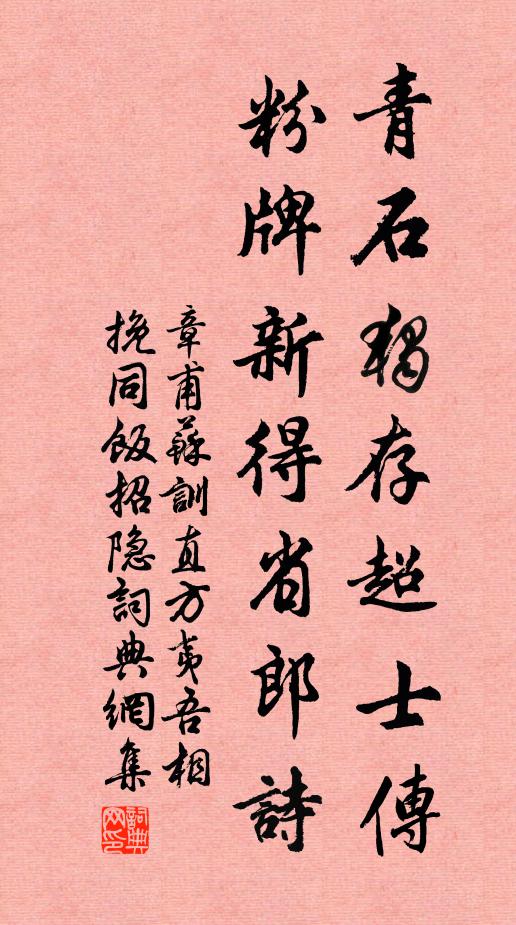 青石獨存超士傳
粉牌新得省郎詩
章甫蘇訓直方夷吾相
挽同飯招隐詞典網集
詞典网印